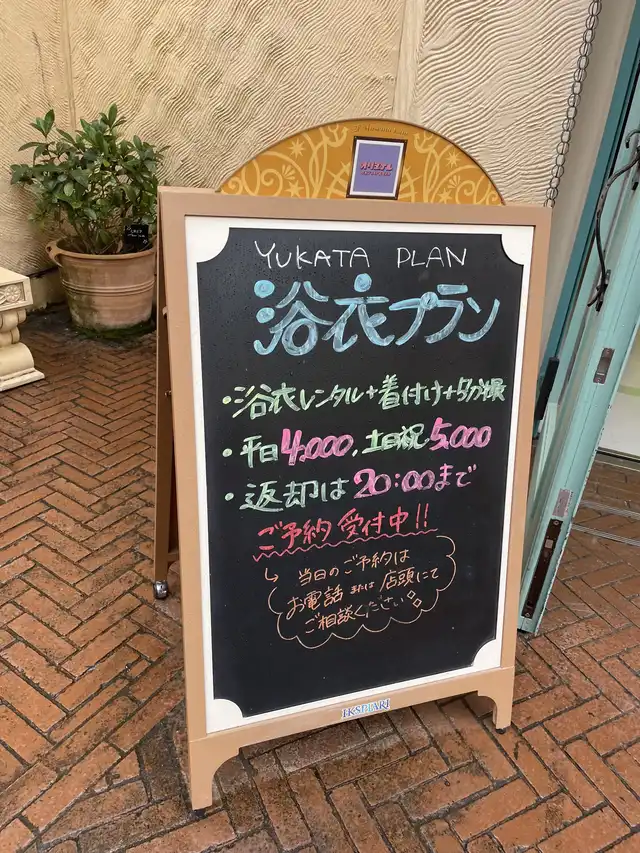 YUKATA PLAN
浴衣プラン
・浴衣レンタル+着付け+5分撮
・平日4,000, 土日祝5,000
・返却は20:00まで
ご予約受付中!!
↳ 当日のご予約は
お電話または店頭にて
ご相談ください
IKSPIARI